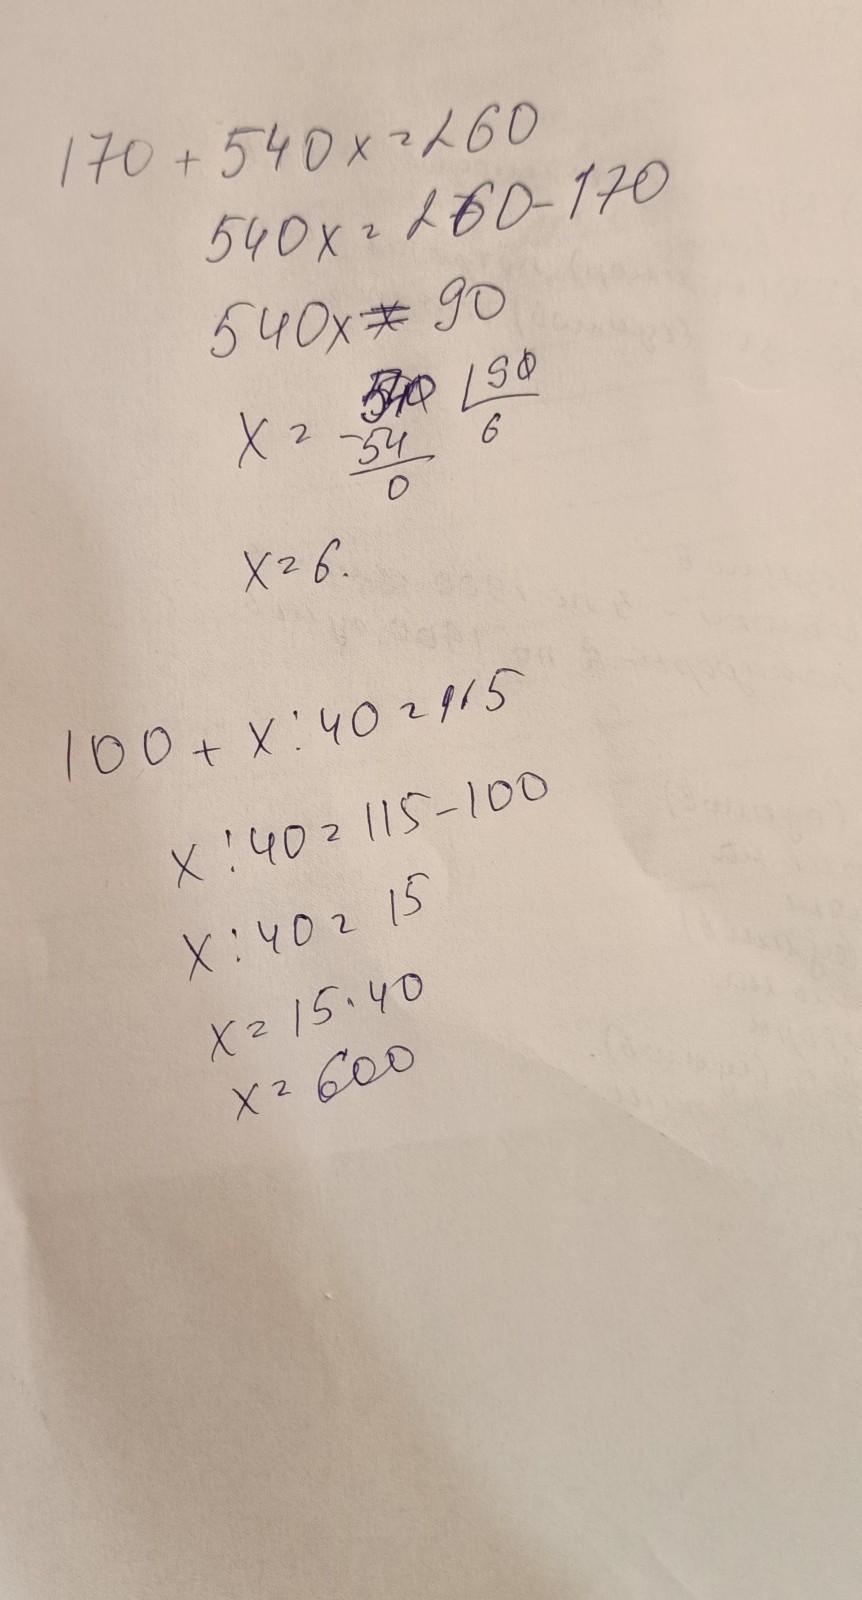 170 + 540x = 260
540x = 260 - 170
540x = 90
x = 540 | 90
-54 6
0
x = 6.
100 + x : 40 = 115
x : 40 = 115 - 100
x : 40 = 15
x = 15 · 40
x = 600